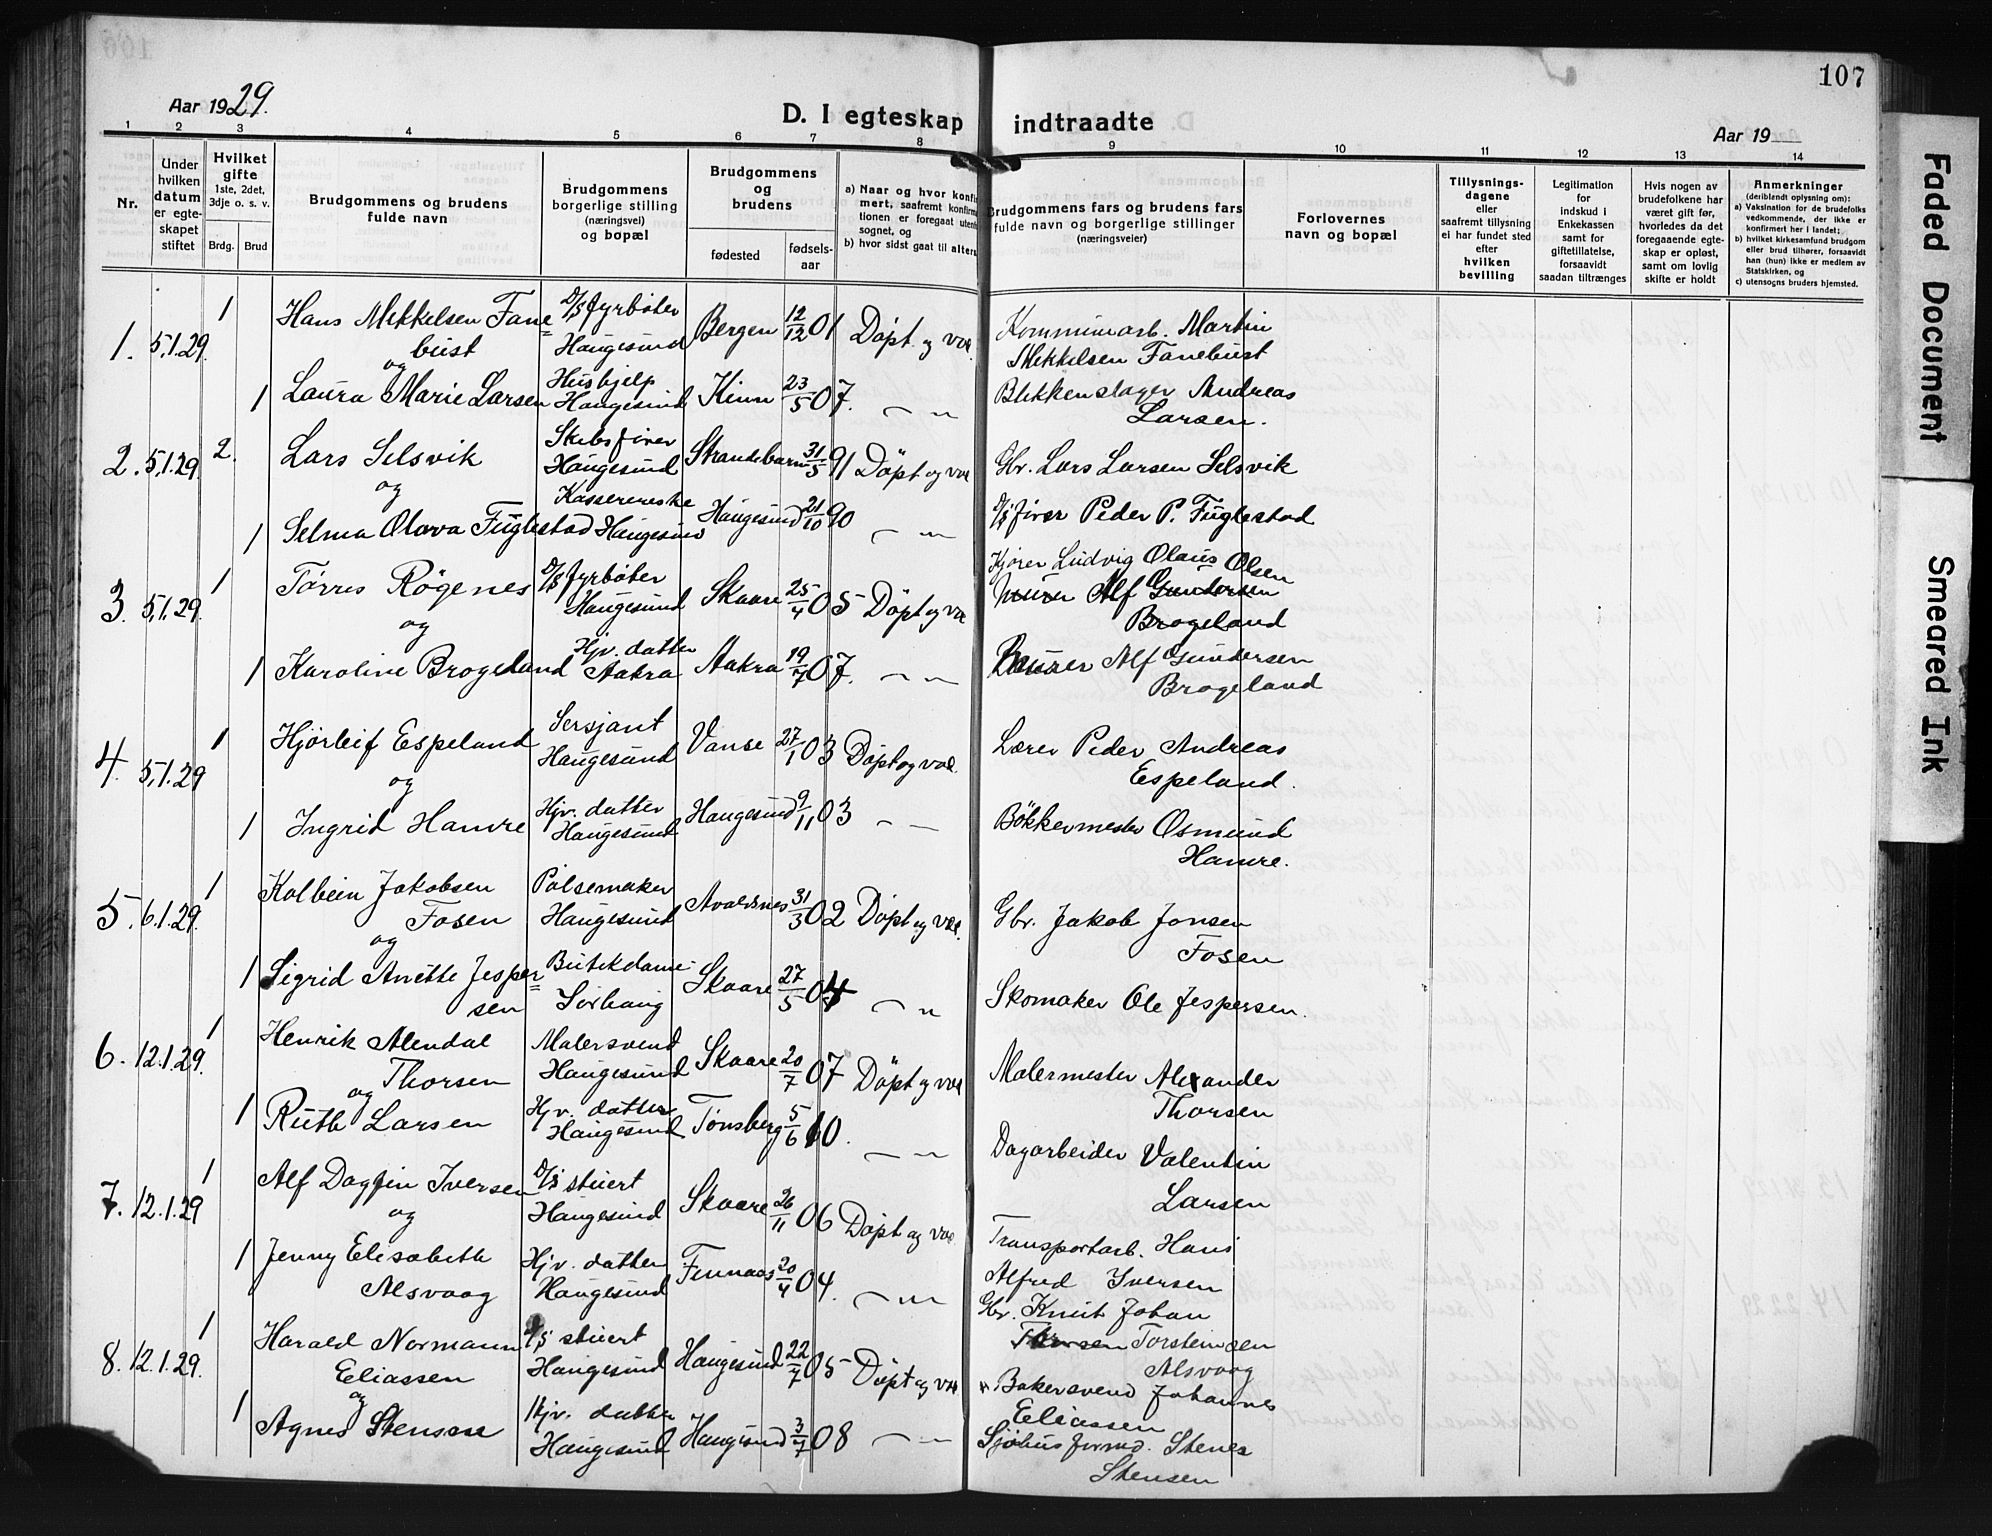 107
Aar 1929.
D. I egteskap indtraadte
Aar 19
1 2 3 4 5 6 7 8 9 10 11 12 13 14
Nr.
Under hvilken datum er egte-skapet stiftet
Hvilket gifte 1ste, 2det, 3dje o. s. v.
Brdg. Brud
Brudgommens og brudens fulde navn
Brudgommens borgerlige stilling (næringsvei) og bopæl
Brudgommens og brudens
fødested
fødsels-aar
a) Naar og hvor konfir
mert, saafremt konfirma
tionen er foregaat utenfo
sognet, og
b) hvor sidst gaat til alters
Brudgommens fars og brudens fars
fulde navn og borgerlige stillinger
(næringsveier)
Forlovernes
navn og bopæl
Tillysnings-
dagene
eller
saafremt tillysning
ei har fundet sted
efter
hvilken
bevilling
Legitimation
for
indskud i
Enkekassen
samt for
giftetillatelse,
forsaavidt
saadan tiltrænges
Hvis nogen av
brudefolkene har
været gift før,
hvorledes da det
foregaaende egte-
skap er opløst,
samt om lovlig
skifte er holdt
Anmerkninger
(deriblendt oplysning om):
a) Vaksination for de brudefolks
vedkommende, der ikke er
konfirmert her i landet;
b) hvilket kirkesamfund brudgom
eller brud tilhører, forsaavidt
han (hun) ikke er medlem av
Statskirken, og
c) utensogns bruders hjemsted.
1. 5.1.29. 1 Hans Mikkelsen Fane= D/S fyrbøter Bergen 12/12 01 Döpt og vac. Kommunearb. Martin
bust Haugesund Mikkelsen Fanebust
og
1 Laura Marie Larsen Hushjelp Haugesund Kinn 23/5 07. " " Blikkenslager Andreas
Larsen.
2. 5.1.29. 2. Lars Selsvik Skibsfører Haugesund Strandebarm 31/5 91 Döpt og vac Gbr. Lars Larsen Selsvik
og
1 Selma Olava Fuglestad Kassererske Haugesund Haugesund 21/10 90 " " D/S fører Peder P. Fuglestad
3. 5.1.29. 1 Tørres Rögenes D/S fyrbøter Haugesund Skaare 25/4 05 Döpt og vac Kjører Ludvig Olaus Olsen
Murer Alf Gundersen
Brogeland
og
1 Karoline Brogeland Hjv. datter Aakra Aakra 19/7 07. " " Murer Alf Gundersen
Brogeland
4. 5.1.29 1 Hjørleif Espeland Sersjant Haugesund Vanse 27/1 03 Döpt og vac. Lærer Peder Andreas
Espeland.
og
1 Ingrid Hamre Hjv. datter Haugesund Haugesund 9/11 03 " " Bökkermester Osmund
Hamre.
5. 6.1.29. 1 Kolbein Jakobsen Pølsemaker Avaldsnes 31/3 02 Döpt og vac. Gbr. Jakob Jonsen
Fosen Haugesund Fosen
og
1 Sigrid Anette Jesper= Butikdame Skaare 27/5 04 " " Skomaker Ole Jespersen.
sen Sørhaug
6. 12.1.29. 1 Henrik Alendal Malersvend Skaare 20/7 07 Döpt og vac Malermester Alexander
Thorsen Haugesund Thorsen
og
1 Ruth Larsen Hjv. datter Haugesund Tønsberg 5/6 10. " " Dagarbeider Valentin
Larsen
7. 12.1.29 1 Alf Dagfin Iversen D/S stuert Haugesund Skaare 26/11 06 Döpt og vac. Transportarb. Hans
Alfred Iversen
og
1 Jenny Elisabeth Hjv. datter Finnaas 20/4 04. " " Gbr. Knut Johan
Alsvaag Haugesund Torsteinsen
Alsvaag
8. 12.1.29. 1 Harald Normann D/S stuert Haugesund 22/7 05 Döpt og vac Bakersvend Johannes
Eliassen Haugesund Eliassen
og
1 Agnes Stensen Hjv. datter Haugesund Haugesund 3/7 08 " " Sjøhusformd.
Stensen
Faded Document
Smeared Ink